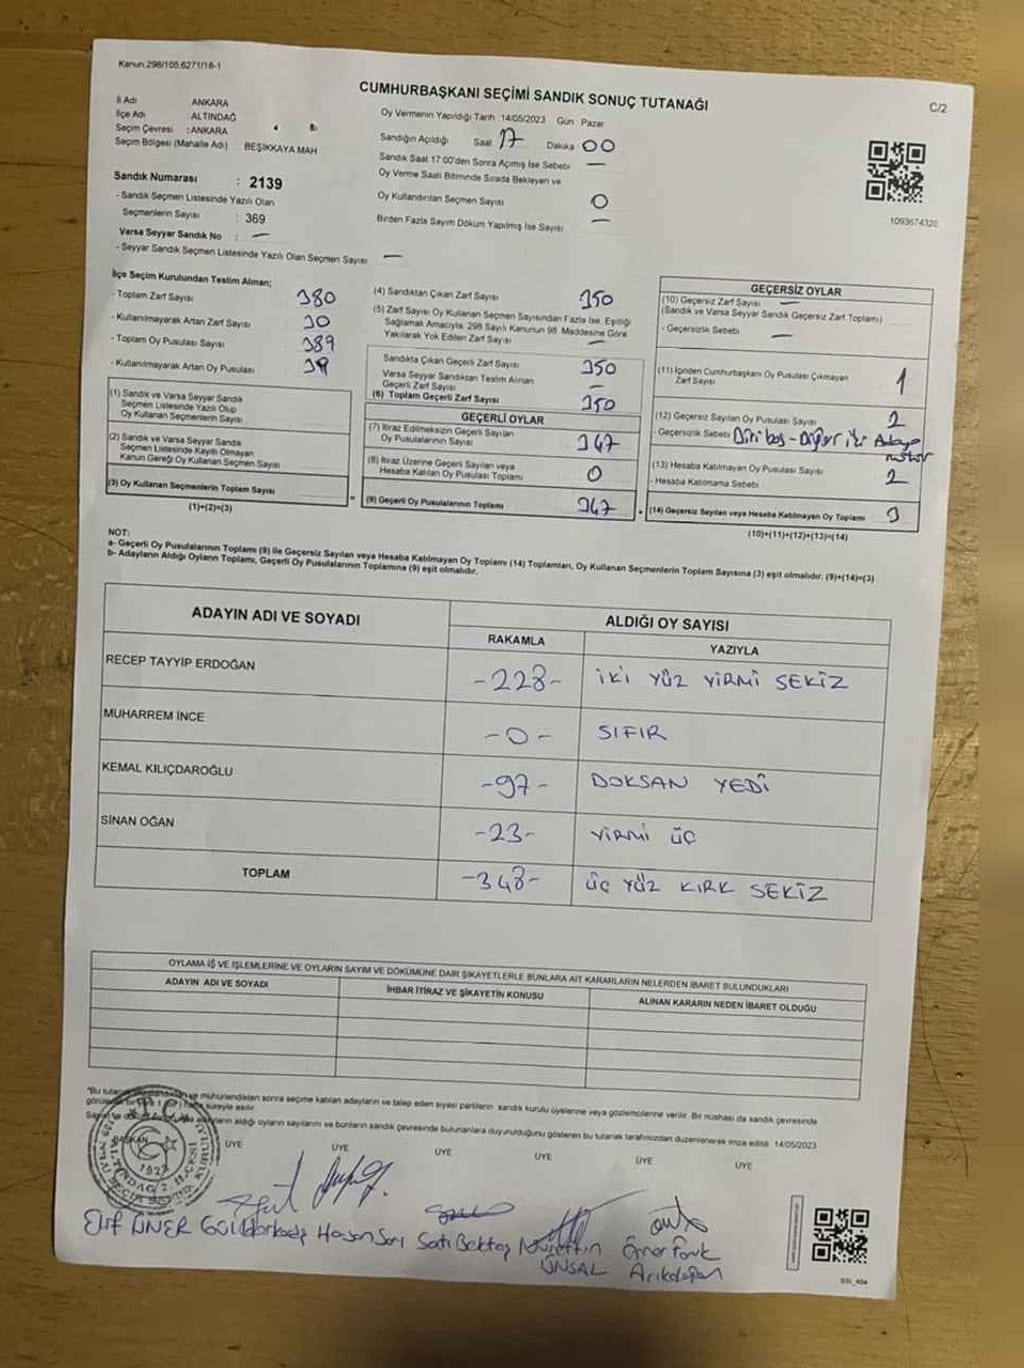 Kanun:298/105;6271/18-1
CUMHURBAŞKANI SEÇİMİ SANDIK SONUÇ TUTANAĞI
C/2
İl Adı ANKARA
İlçe Adı ALTINDAĞ
Seçim Çevresi : ANKARA
Seçim Bölgesi (Mahalle Adı) BEŞİKKAYA MAH
Sandık Numarası : 2139
- Sandık Seçmen Listesinde Yazılı Olan
Seçmenlerin Sayısı : 369
Varsa Seyyar Sandık No : —
- Seyyar Sandık Seçmen Listesinde Yazılı Olan Seçmen Sayısı —
Oy Vermenin Yapıldığı Tarih : 14/05/2023 Gün Pazar
Sandığın Açıldığı Saat 17 Dakika 00
Sandık Saat 17:00'den Sonra Açılmış İse Sebebi —
Oy Verme Saati Bitiminde Sırada Bekleyen ve
Oy Kullandırılan Seçmen Sayısı 0
Birden Fazla Sayım Döküm Yapılmış İse Sayısı —
1093674320
İlçe Seçim Kurulundan Teslim Alınan;
- Toplam Zarf Sayısı 380
- Kullanılmayarak Artan Zarf Sayısı 30
- Toplam Oy Pusulası Sayısı 389
- Kullanılmayarak Artan Oy Pusulası 39
(1) Sandık ve Varsa Seyyar Sandık
Seçmen Listesinde Yazılı Olup
Oy Kullanan Seçmenlerin Sayısı
(2) Sandık ve Varsa Seyyar Sandık
Seçmen Listesinde Kayıtlı Olmayan
Kanun Gereği Oy Kullanan Seçmen Sayısı
(3) Oy Kullanan Seçmenlerin Toplam Sayısı
(1)+(2)=(3)
(4) Sandıktan Çıkan Zarf Sayısı 350
(5) Zarf Sayısı Oy Kullanan Seçmen Sayısından Fazla İse, Eşitliği
Sağlamak Amacıyla; 298 Sayılı Kanunun 98. Maddesine Göre
Yakılarak Yok Edilen Zarf Sayısı —
Sandıkta Çıkan Geçerli Zarf Sayısı 350
Varsa Seyyar Sandıktan Teslim Alınan
Geçerli Zarf Sayısı —
(6) Toplam Geçerli Zarf Sayısı 350
GEÇERLİ OYLAR
(7) İtiraz Edilmeksizin Geçerli Sayılan
Oy Pusulalarının Sayısı 347
(8) İtiraz Üzerine Geçerli Sayılan veya
Hesaba Katılan Oy Pusulası Toplamı 0
= (9) Geçerli Oy Pusulalarının Toplamı 347
GEÇERSİZ OYLAR
(10) Geçersiz Zarf Sayısı —
(Sandık ve Varsa Seyyar Sandık Geçersiz Zarf Toplamı)
- Geçersizlik Sebebi —
(11) İçinden Cumhurbaşkanı Oy Pusulası Çıkmayan
Zarf Sayısı 1
(12) Geçersiz Sayılan Oy Pusulası Sayısı 2
- Geçersizlik Sebebi Biri boş - Diğer iki
(13) Hesaba Katılmayan Oy Pusulası Sayısı 2
- Hesaba Katılmama Sebebi
(14) Geçersiz Sayılan veya Hesaba Katılmayan Oy Toplamı 3
(10)+(11)+(12)+(13)=(14)
NOT:
a- Geçerli Oy Pusulalarının Toplamı (9) ile Geçersiz Sayılan veya Hesaba Katılmayan Oy Toplamı (14) Toplamları, Oy Kullanan Seçmenlerin Toplam Sayısına (3) eşit olmalıdır. (9)+(14)=(3)
b- Adayların Aldığı Oyların Toplamı, Geçerli Oy Pusulalarının Toplamına (9) eşit olmalıdır.
ADAYIN ADI VE SOYADI
ALDIĞI OY SAYISI
RAKAMLA YAZIYLA
RECEP TAYYİP ERDOĞAN -228- İKİ YÜZ YİRMİ SEKİZ
MUHARREM İNCE -0- SIFIR
KEMAL KILIÇDAROĞLU -97- DOKSAN YEDİ
SİNAN OĞAN -23- YİRMİ ÜÇ
TOPLAM -348- ÜÇ YÜZ KIRK SEKİZ
OYLAMA İŞ VE İŞLEMLERİNE VE OYLARIN SAYIM VE DÖKÜMÜNE DAİR ŞİKAYETLERLE BUNLARA AİT KARARLARIN NELERDEN İBARET BULUNDUKLARI
ADAYIN ADI VE SOYADI İHBAR İTİRAZ VE ŞİKAYETİN KONUSU ALINAN KARARIN NEDEN İBARET OLDUĞU
ve mühürlendikten sonra seçime katılan adayların ve talep eden siyasi partilerin sandık kurulu üyelerine veya gözlemcilerine verilir. Bir nüshası da sandık çevresinde
süreyle asılır.
aldığı oyların sayılarını ve bunların sandık çevresinde bulunanlara duyurulduğunu gösteren bu tutanak tarafımızdan düzenlenerek imza edildi. 14/05/2023
BAŞKAN ÜYE ÜYE ÜYE ÜYE ÜYE ÜYE
Elif ÜNER Hasan Sarı Satı Bektaş Nurettin Ömer Faruk
ÜNSAL Arıkdoğan
SSI_404